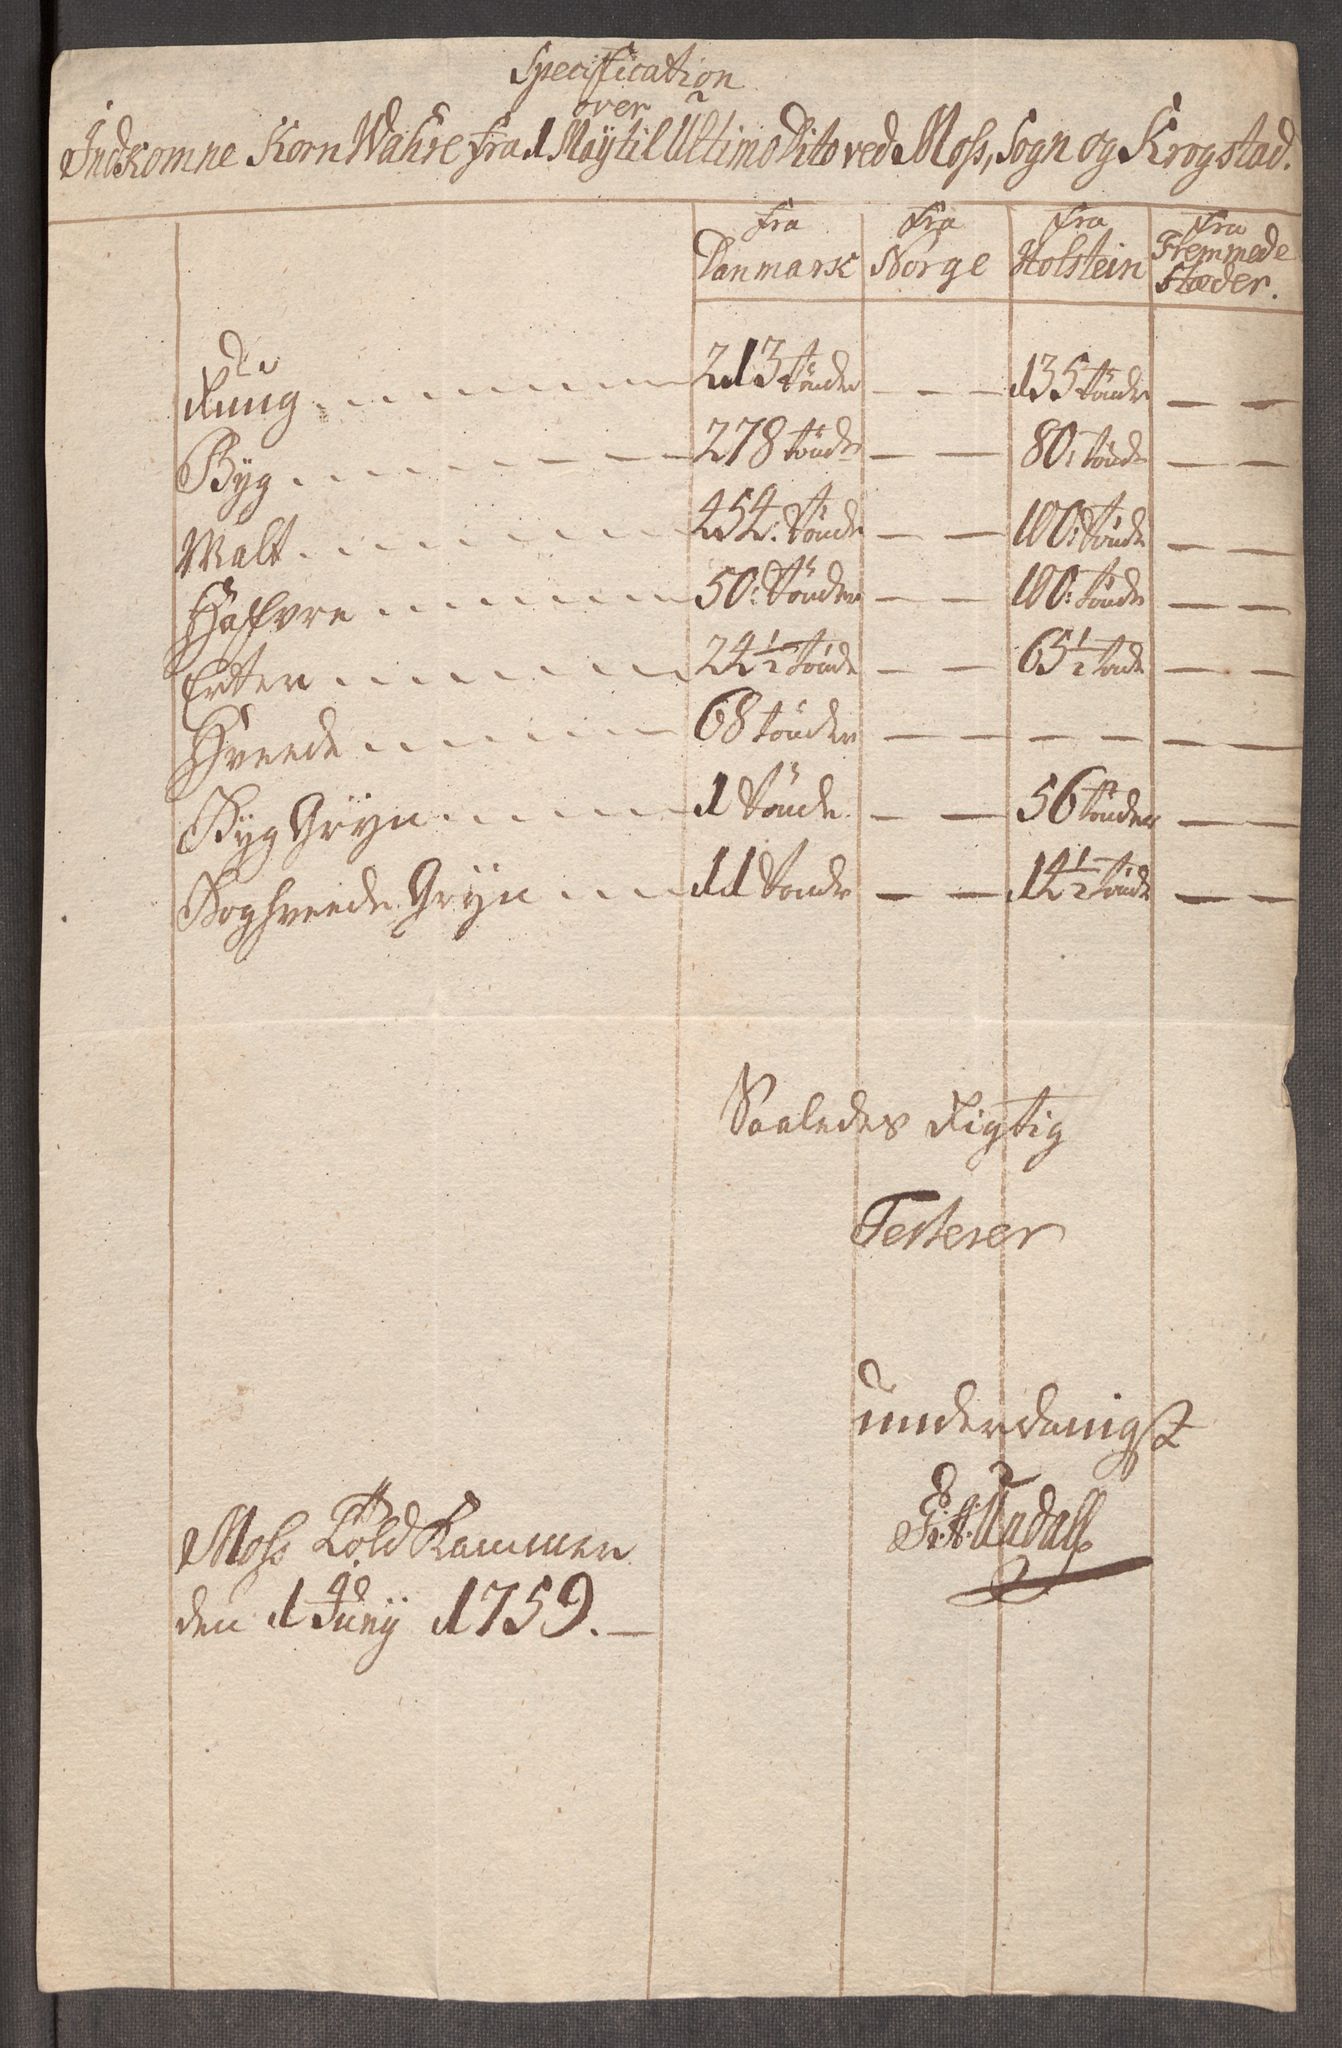 Specification
over
Indkomne Korn Wahre fra 1 Maÿ til Ultimo Dito ved Moss, Sogn og Krogstad.
fra Danmark fra Norge fra Holstein fra Fremmede Stæder.
Rŭug 213 tönder — — 135 tönder — —
Byg 278 tönder — — 80: tönder — —
Malt 454: Tönder — — 100: Tönder — —
Hafvre 50: Tönder — — 100: tönder — —
Erter 24 1/2 tönde — — 65 1/2 tönde — —
Hveede 68 tönder — — — — — —
Byg Grÿn 1 Tönde — — 56 tönder — —
Boghveede Grÿn 11 Tönder — — 14 1/2 Tönde — —
Saaledes Rigtig
Testerer
ŭnderdanigst
Moss Töld Kammer
den 1 Junÿ 1759. —